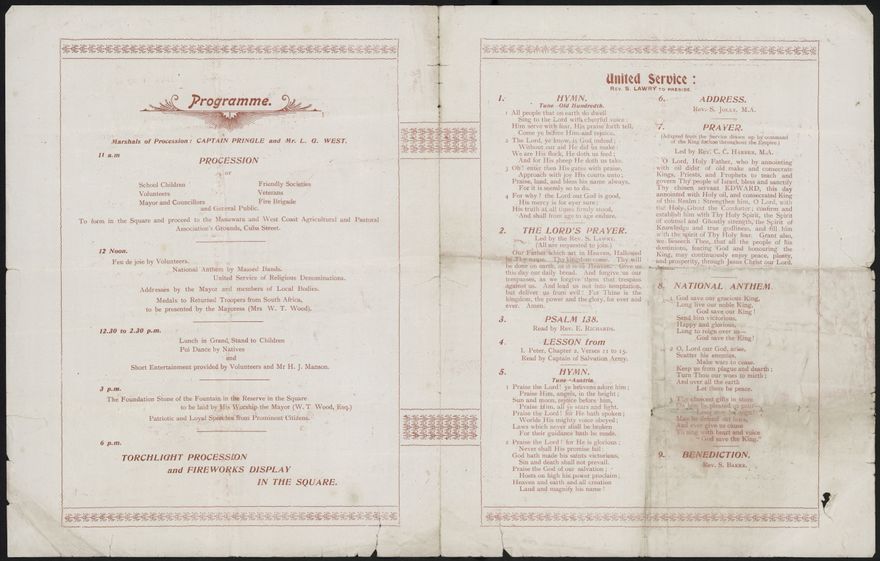 Programme.
Marshals of Procession: CAPTAIN PRINGLE and Mr. L. G. WEST.
11 a.m
PROCESSION
School Children
Volunteers
Mayor and Councillors
Friendly Societies
Veterans
Fire Brigade
and General Public.
To form in the Square and proceed to the Manawatu and West Coast Agricultural and Pastoral
Association's Grounds, Cuba Street.
12 Noon.
Feu de joie by Volunteers.
National Anthem by Massed Bands.
United Service of Religious Denominations.
Addresses by the Mayor and members of Local Bodies.
Medals to Returned Troopers from South Africa,
to be presented by the Mayoress (Mrs W. T. Wood).
12.30 to 2.30 p.m.
Lunch in Grand Stand to Children
Poi Dance by Natives
and
Short Entertainment provided by Volunteers and Mr H. J. Manson.
3 p.m.
The Foundation Stone of the Fountain in the Reserve in the Square
to be laid by His Worship the Mayor (W. T. Wood, Esq.)
Patriotic and Loyal Speeches from Prominent Citizens.
6 p.m.
TORCHLIGHT PROCESSION
and FIREWORKS DISPLAY
IN THE SQUARE.
United Service:
REV. S. LAWRY TO PRESIDE.
1. HYMN.
Tune—Old Hundredth.
1 All people that on earth do dwell
Sing to the Lord with cheerful voice:
Him serve with fear, His praise forth tell,
Come ye before Him and rejoice.
2 The Lord, ye know, is God indeed;
Without our aid He did us make:
We are His flock, He doth us feed;
And for His sheep He doth us take.
3 Oh! enter then His gates with praise,
Approach with joy His courts unto;
Praise, laud, and bless his name always,
For it is seemly so to do.
4 For why? the Lord our God is good,
His mercy is for ever sure;
His truth at all times firmly stood,
And shall from age to age endure.
2. THE LORD'S PRAYER.
Led by the Rev. S. LAWRY.
(All are requested to join.)
Our Father which art in Heaven, Hallowed
be Thy name. Thy kingdom come. Thy will
be done on earth, as it is in Heaven. Give us
this day our daily bread. And forgive us our
trespasses, as we forgive them that trespass
against us. And lead us not into temptation,
but deliver us from evil: For Thine is the
kingdom, the power and the glory, for ever and
ever. Amen.
3. PSALM 138.
Read by Rev. E. RICHARDS.
4. LESSON from
I. Peter, Chapter 2, Verses 11 to 15.
Read by Captain of Salvation Army.
5. HYMN.
Tune—Austria.
1 Praise the Lord! ye heavens adore him;
Praise Him, angels, in the height;
Sun and moon, rejoice before him,
Praise Him, all ye stars and light.
Praise the Lord! for He hath spoken;
Worlds His mighty voice obeyed;
Laws which never shall be broken
For their guidance hath be made.
2 Praise the Lord! for He is glorious;
Never shall His promise fail:
God hath made his saints victorious,
Sin and death shall not prevail.
Praise the God of our salvation;
Hosts on high his power proclaim;
Heaven and earth and all creation
Laud and magnify his name!
6. ADDRESS.
Rev. S. JOLLY, M.A.
7. PRAYER.
(Adapted from the Service drawn up by command
of the King for use throughout the Empire.)
Led by Rev. C. C. HARPER, M.A.
O Lord, Holy Father, who by anointing
with oil didst of old make and consecrate
Kings, Priests, and Prophets to teach and
govern Thy people of Israel, bless and sanctify
Thy chosen servant EDWARD, this day
annointed with Holy oil, and consecrated King
of this Realm: Strengthen him, O Lord, with
the Holy Ghost the Comforter; confirm and
establish him with Thy Holy Spirit, the Spirit
of counsel and Ghostly strength, the Spirit of
Knowledge and true godliness, and fill him
with the spirit of Thy Holy fear. Grant also,
we beseech Thee, that all the people of his
dominions, fearing God and honouring the
King, may continuously enjoy peace, plenty,
and prosperity, through Jesus Christ our Lord.
8. NATIONAL ANTHEM.
1 God save our gracious King,
Long live our noble King,
God save our King!
Send him victorious,
Happy and glorious,
Long to reign over us—
God save the King!
2 O, Lord our God, arise,
Scatter his enemies,
Make wars to cease.
Keep us from plague and dearth;
Turn Thou our woes to mirth;
And over all the earth
Let there be peace.
3 Thy choicest gifts in store
On him be pleased to pour
Long may he reign!
May he defend our laws,
And ever give us cause
To sing with heart and voice
"God save the King."
9. BENEDICTION.
Rev. S. BAKER.